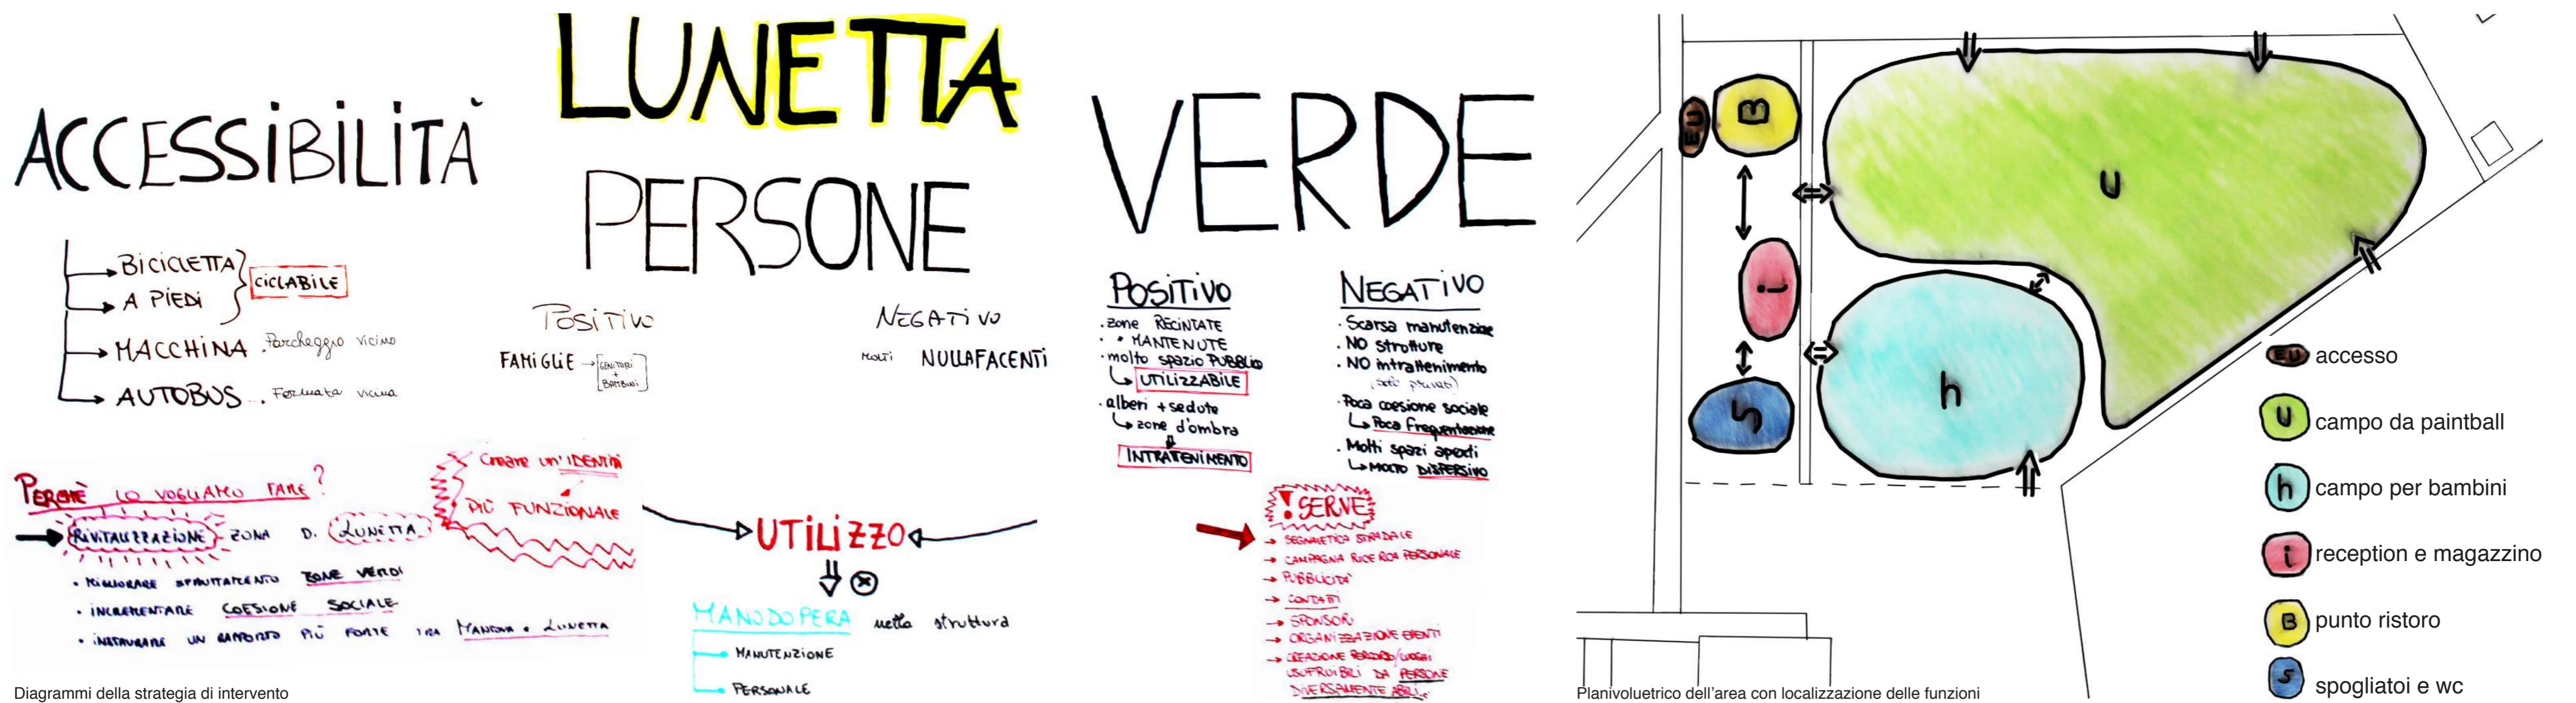 LUNETTA
ACCESSIBILITÀ
BICICLETTA
A PIEDI
CICLABILE
MACCHINA . Parcheggio vicino
AUTOBUS . Fermata vicina
PERCHÈ LO VOGLIAMO FARE?
RIVITALIZZAZIONE ZONA DI LUNETTA
• MIGLIORARE SFRUTTAMENTO ZONE VERDI
• INCREMENTARE COESIONE SOCIALE
• INSTAURARE UN RAPPORTO PIÙ FORTE TRA MANTOVA e LUNETTA
Creare un'IDENTITÀ
PIÙ FUNZIONALE
Diagrammi della strategia di intervento
PERSONE
POSITIVO
FAMIGLIE → GENITORI
+
BAMBINI
NEGATIVO
MOLTI NULLAFACENTI
UTILIZZO
MANODOPERA nella struttura
MANUTENZIONE
PERSONALE
VERDE
POSITIVO
. zone RECINTATE
. " MANTENUTE
. molto spazio PUBBLICO
UTILIZZABILE
. alberi + sedute
zone d'ombra
INTRATENIMENTO
NEGATIVO
. Scarsa manutenzione
. NO strutture
. NO intrattenimento
(solo privati)
. Poca coesione sociale
Poca frequentazione
. Molti spazi aperti
MOLTO DISPERSIVO
! SERVE
→ SEGNALETICA STRADALE
→ CAMPAGNA RICERCA PERSONALE
→ PUBBLICITÀ
→ CONTATTI
→ SPONSOR
→ ORGANIZZAZIONE EVENTI
→ CREAZIONE PERCORSI/LUOGHI
USUFRUIBILI DA PERSONE
DIVERSAMENTE ABILI
EU
B
U
i
h
S
EU accesso
U campo da paintball
h campo per bambini
i reception e magazzino
B punto ristoro
S spogliatoi e wc
Planivoluetrico dell'area con localizzazione delle funzioni